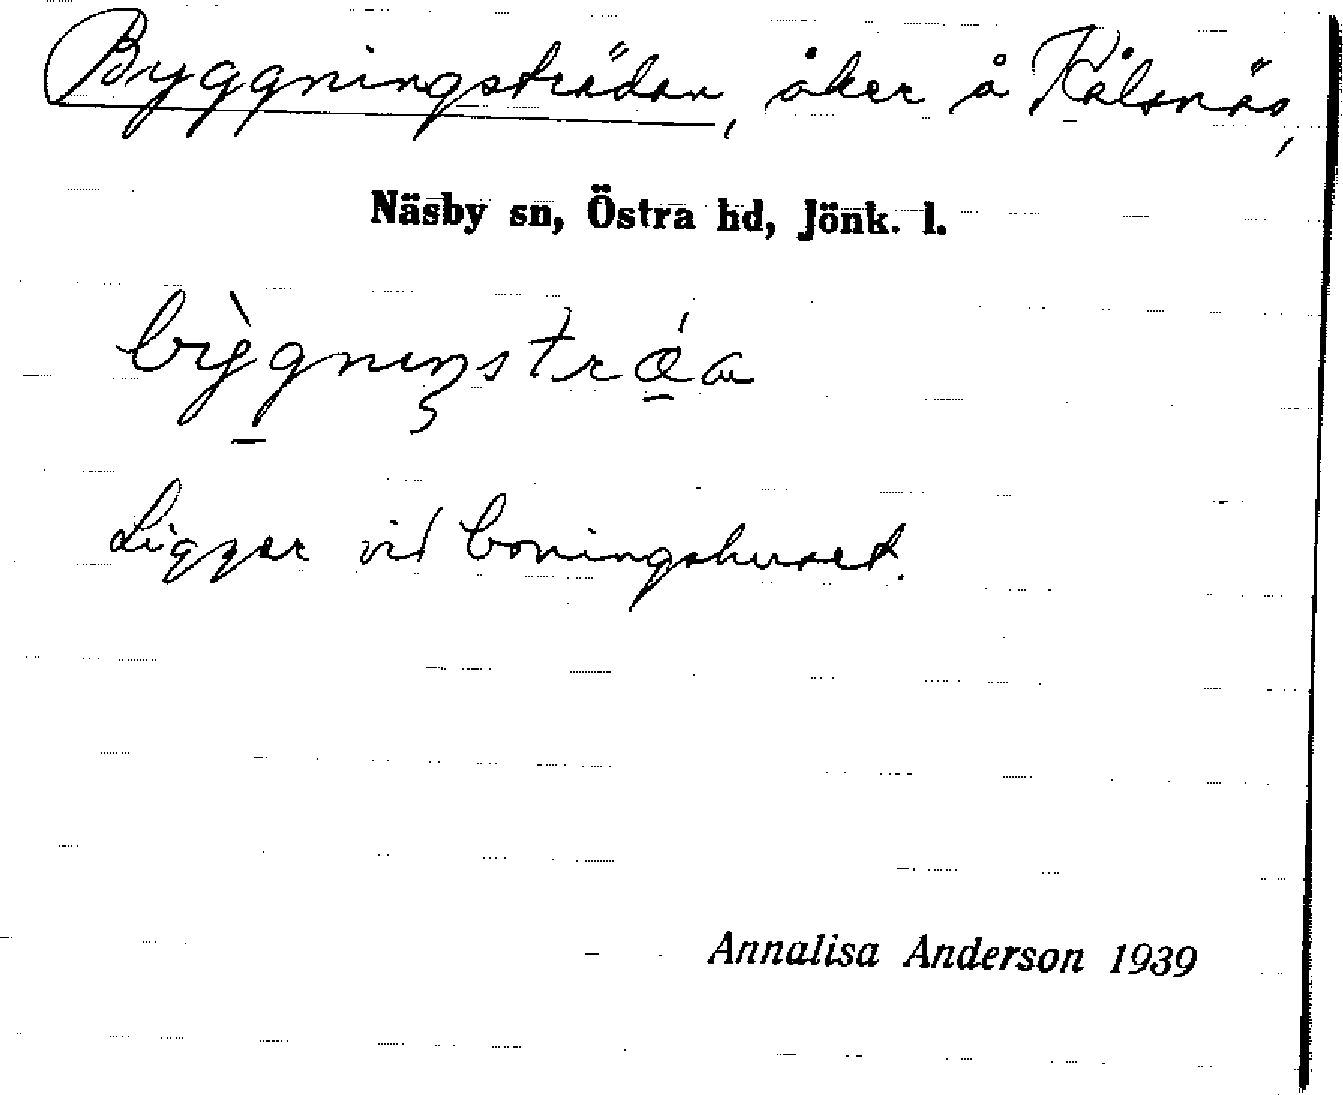 Byggningsträdan, åker å Kålsnäs,
Näsby sn, Östra hd, Jönk. l.
bỳgnıŋstrǽa
Ligger vid boningshuset.
Annalisa Anderson 1939